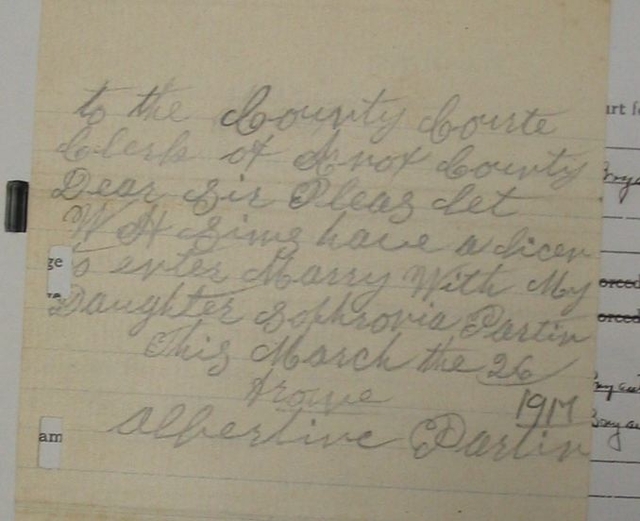 to the County Courte
Clerk of Knox County
Dear Sir Pleas let
W H Sims have a licen
s enter Marry With My
Daughter Sophronia Partin
This March the 26
1917
Albertine Partin
ge
am
orced
orced